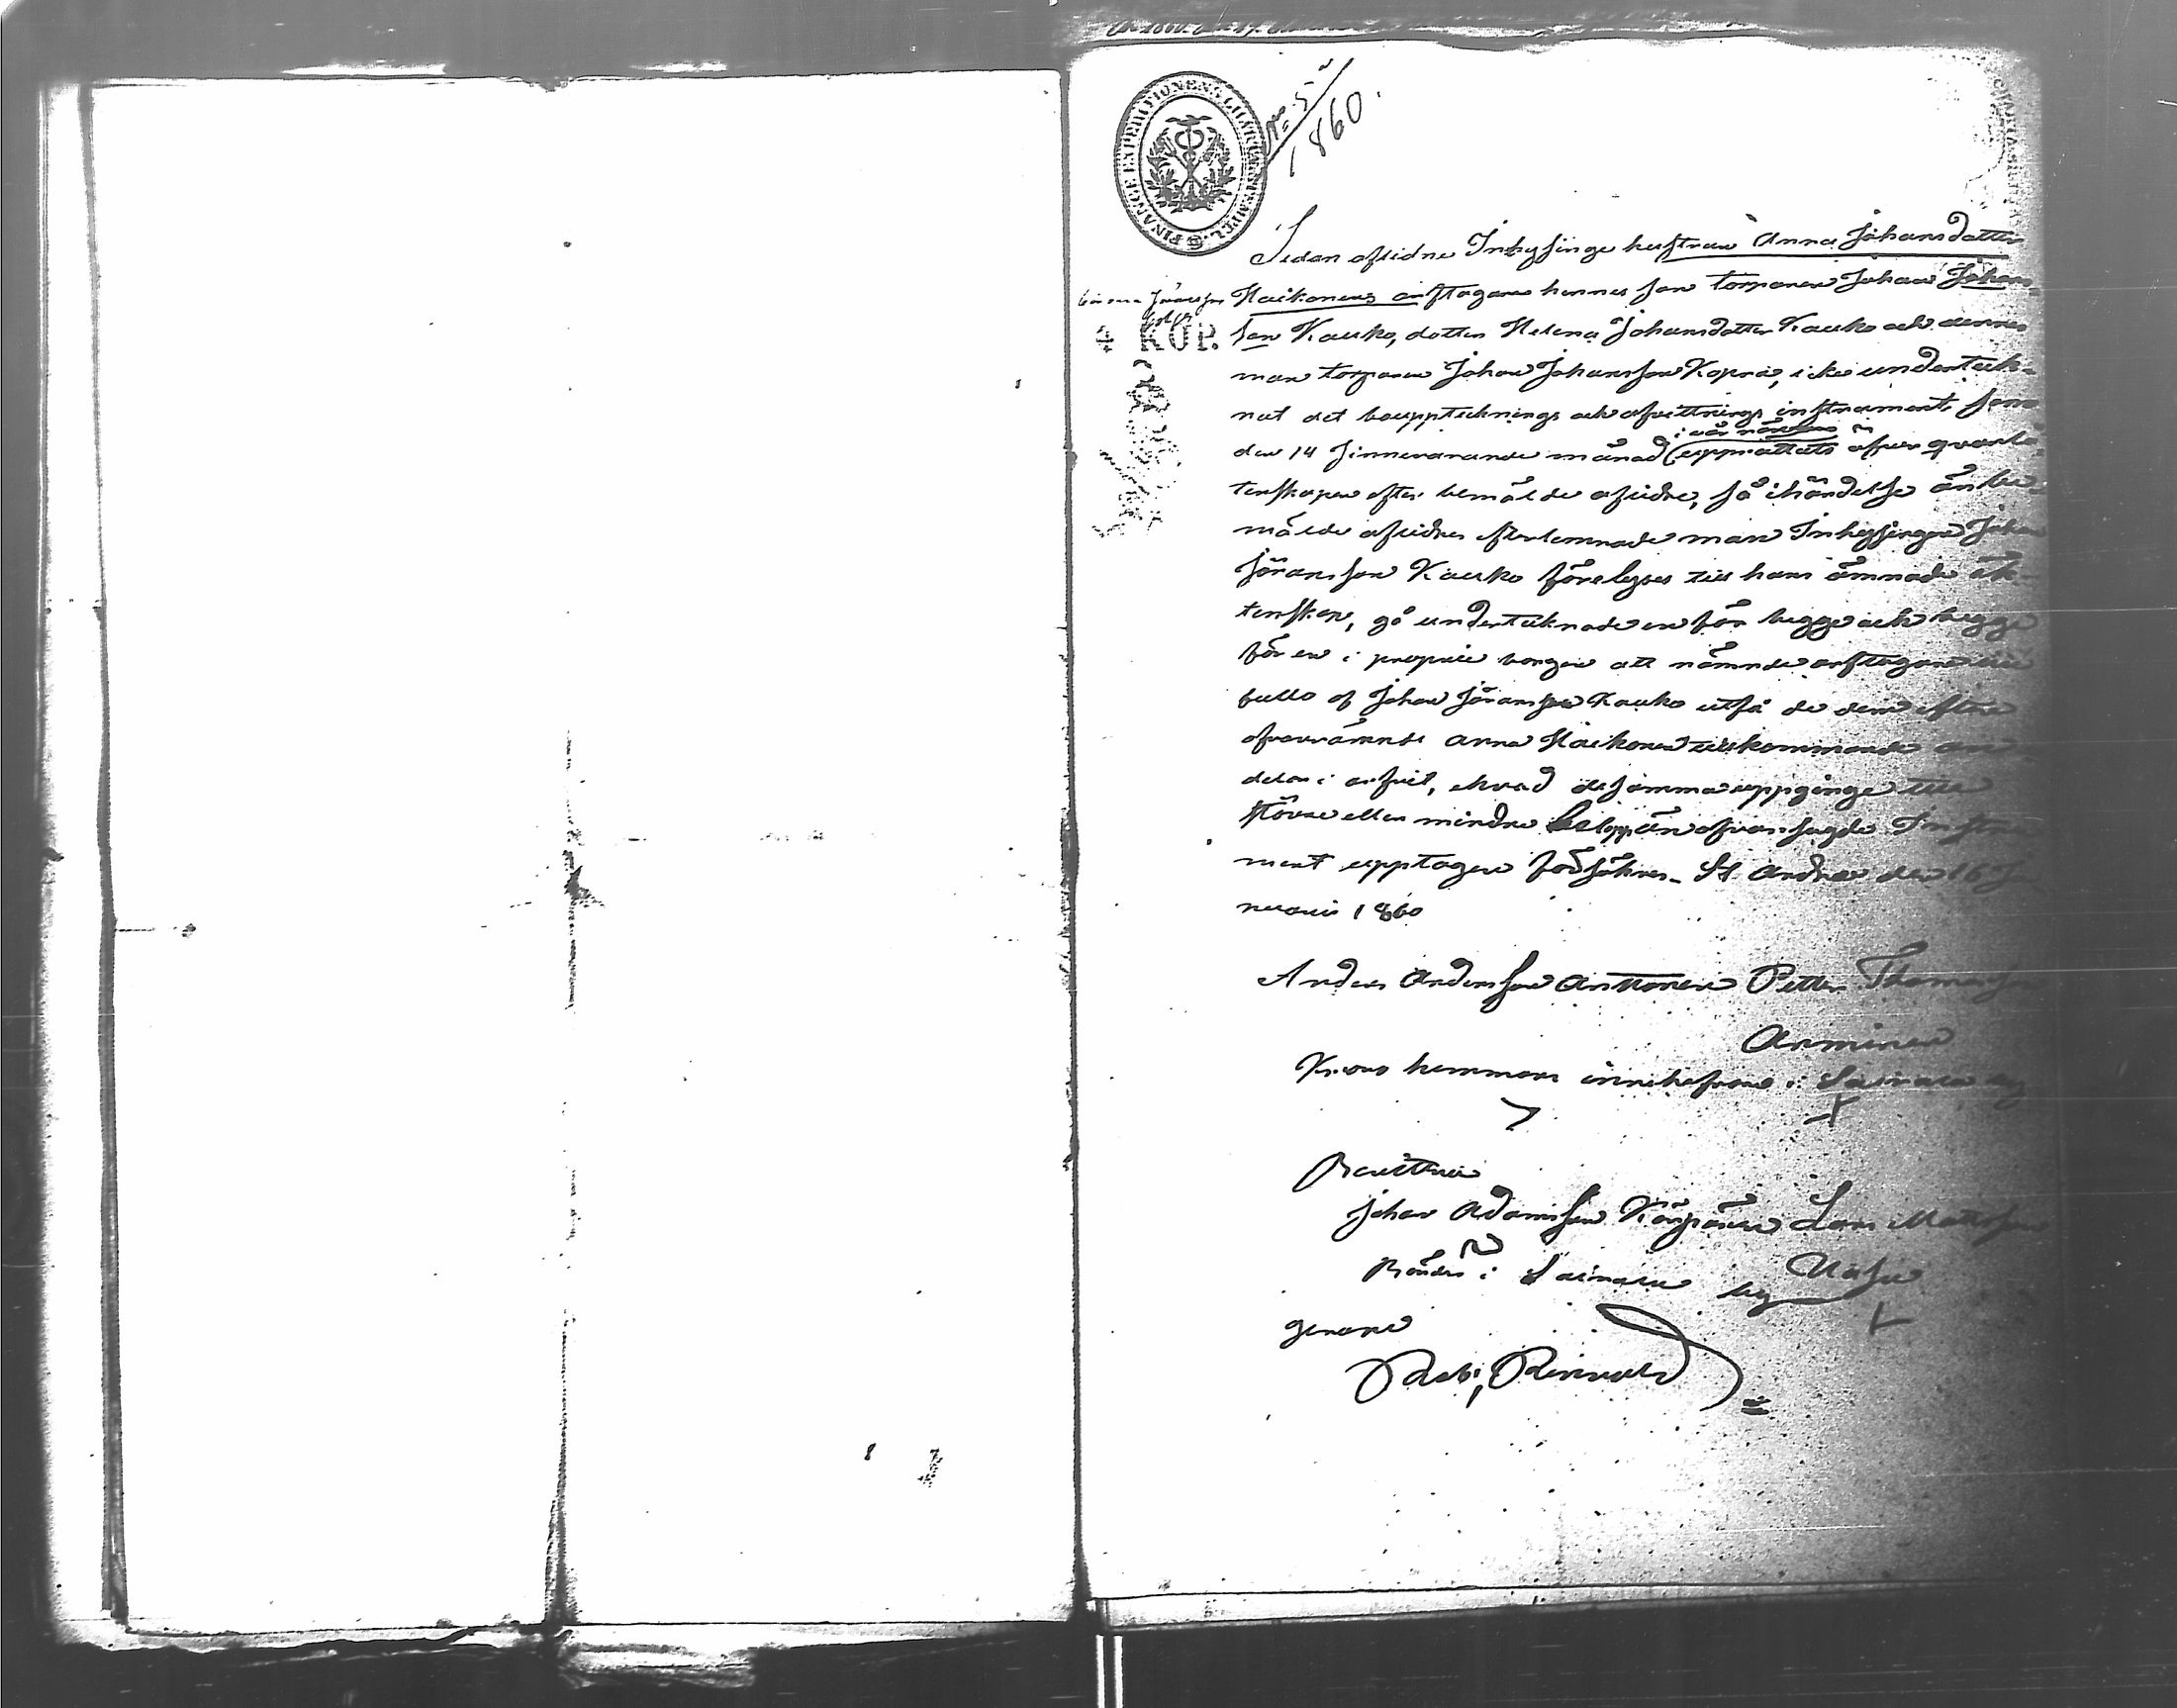 FINANCE EXPEDITIONENS CHARTÆ STEMPEL
1860.
Sedan aflidne Inhysinge hustrun Anna Johansdotter
Haikonens arftagare hennes son torparen Johan Johans-
4 KOP.
son Kauko, dotter Helena Johansdotter Kauko och dennes
man torparen Johan Johansson Kopra, icke underteck-
nat det bouppteknings och afvittrings instrument som
den 14 sinnevarande månad i vår närvaro upprättats öfver qvarlå-
tenskapen efter bemälde aflidne, så i händelse än be-
mälde aflidnes efterlemnade man Inhysingen Johan
Jöransson Kauko förelyses till hans ämnade äk-
tenskap, gå undertecknade en för begge och begge
för en i proprie borgen att nämnde arftagare till
fullo af Johan Jöransson Kauko utfå de dem efter
ofvannämnde Anna Haikonen tillkommande an-
delar i arfvet, ehvad desamma uppginge till
större eller mindre belopp än ofvansagde Instru-
ment upptager försäkres. St Andreæ den 16 Ja-
nuarii 1860
Anders Andersson Anttonen Petter Thomasson
Arminen
Krono hemmans innehafvare i Sairala by
X
Bevittna
Johan Adamsson Kärpänen Lars Mattsson
Bönder i Sairala by
X
genom